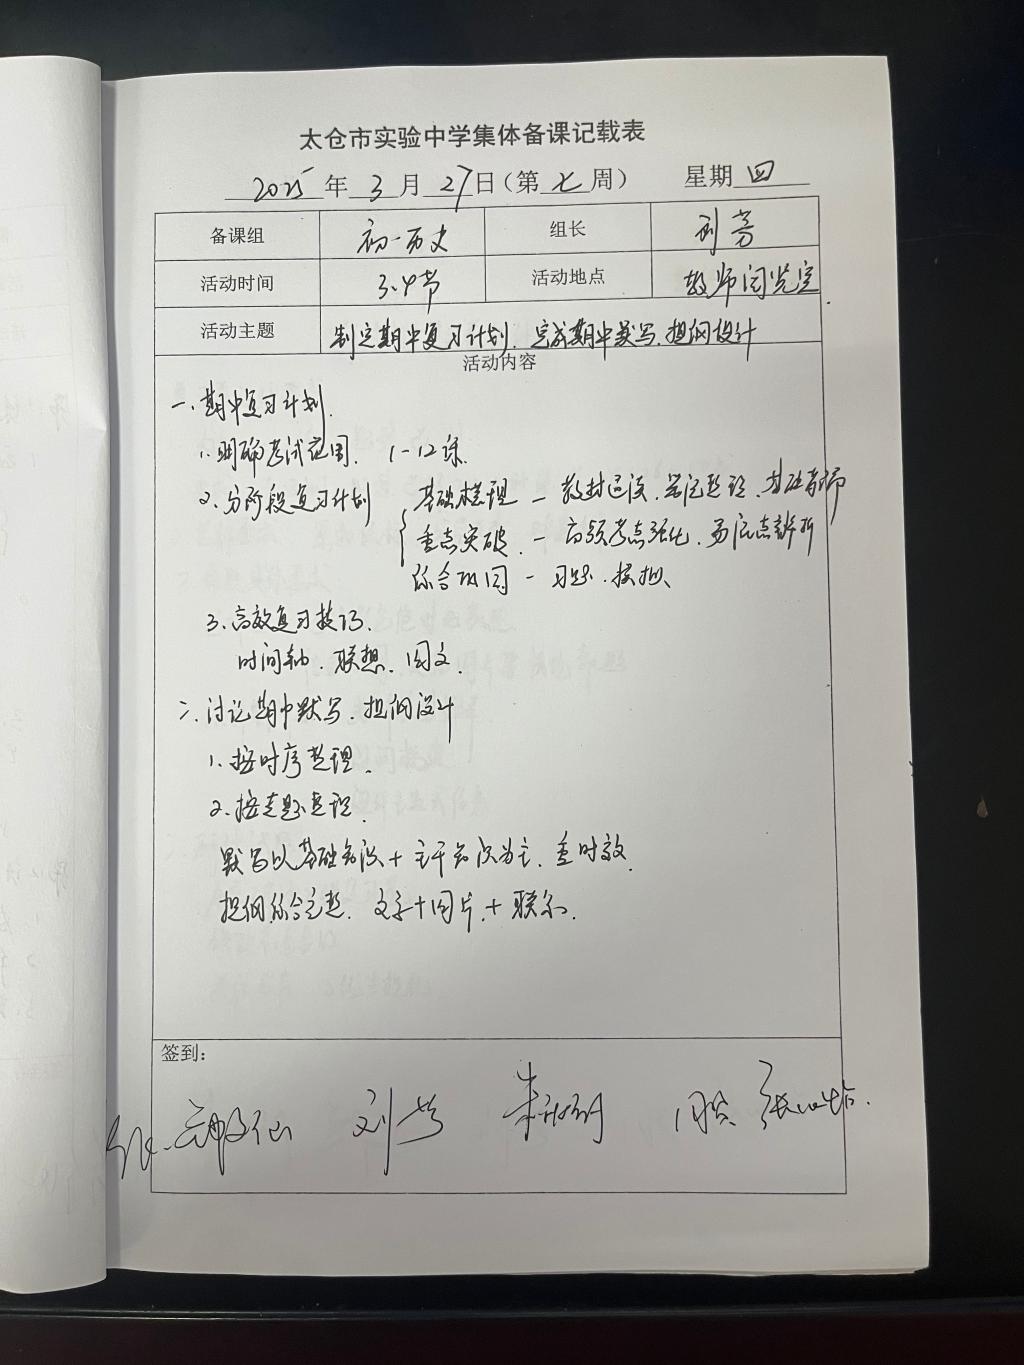 太仓市实验中学集体备课记载表
2025年 3月 27日（第七周） 星期四
备课组 初一历史 组长 刘芳
活动时间 3.4节 活动地点 教师阅览室
活动主题 制定期中复习计划、完成期中默写、提纲设计
活动内容
一、期中复习计划.
1.明确考试范围. 1-12课.
2.分阶段复习计划 基础梳理 — 教材返读、笔记整理、
重点突破. — 高频考点强化、易混点辨析
综合巩固 — 习题、模拟、
3.高效复习技巧.
时间轴、联想、图文.
二、讨论期中默写、提纲设计
1.按时序整理.
2.按专题整理.
默写以基础知识+主干知识为主、重时效.
提纲综合完整. 文字+图片+联系.
签到：
刘芳